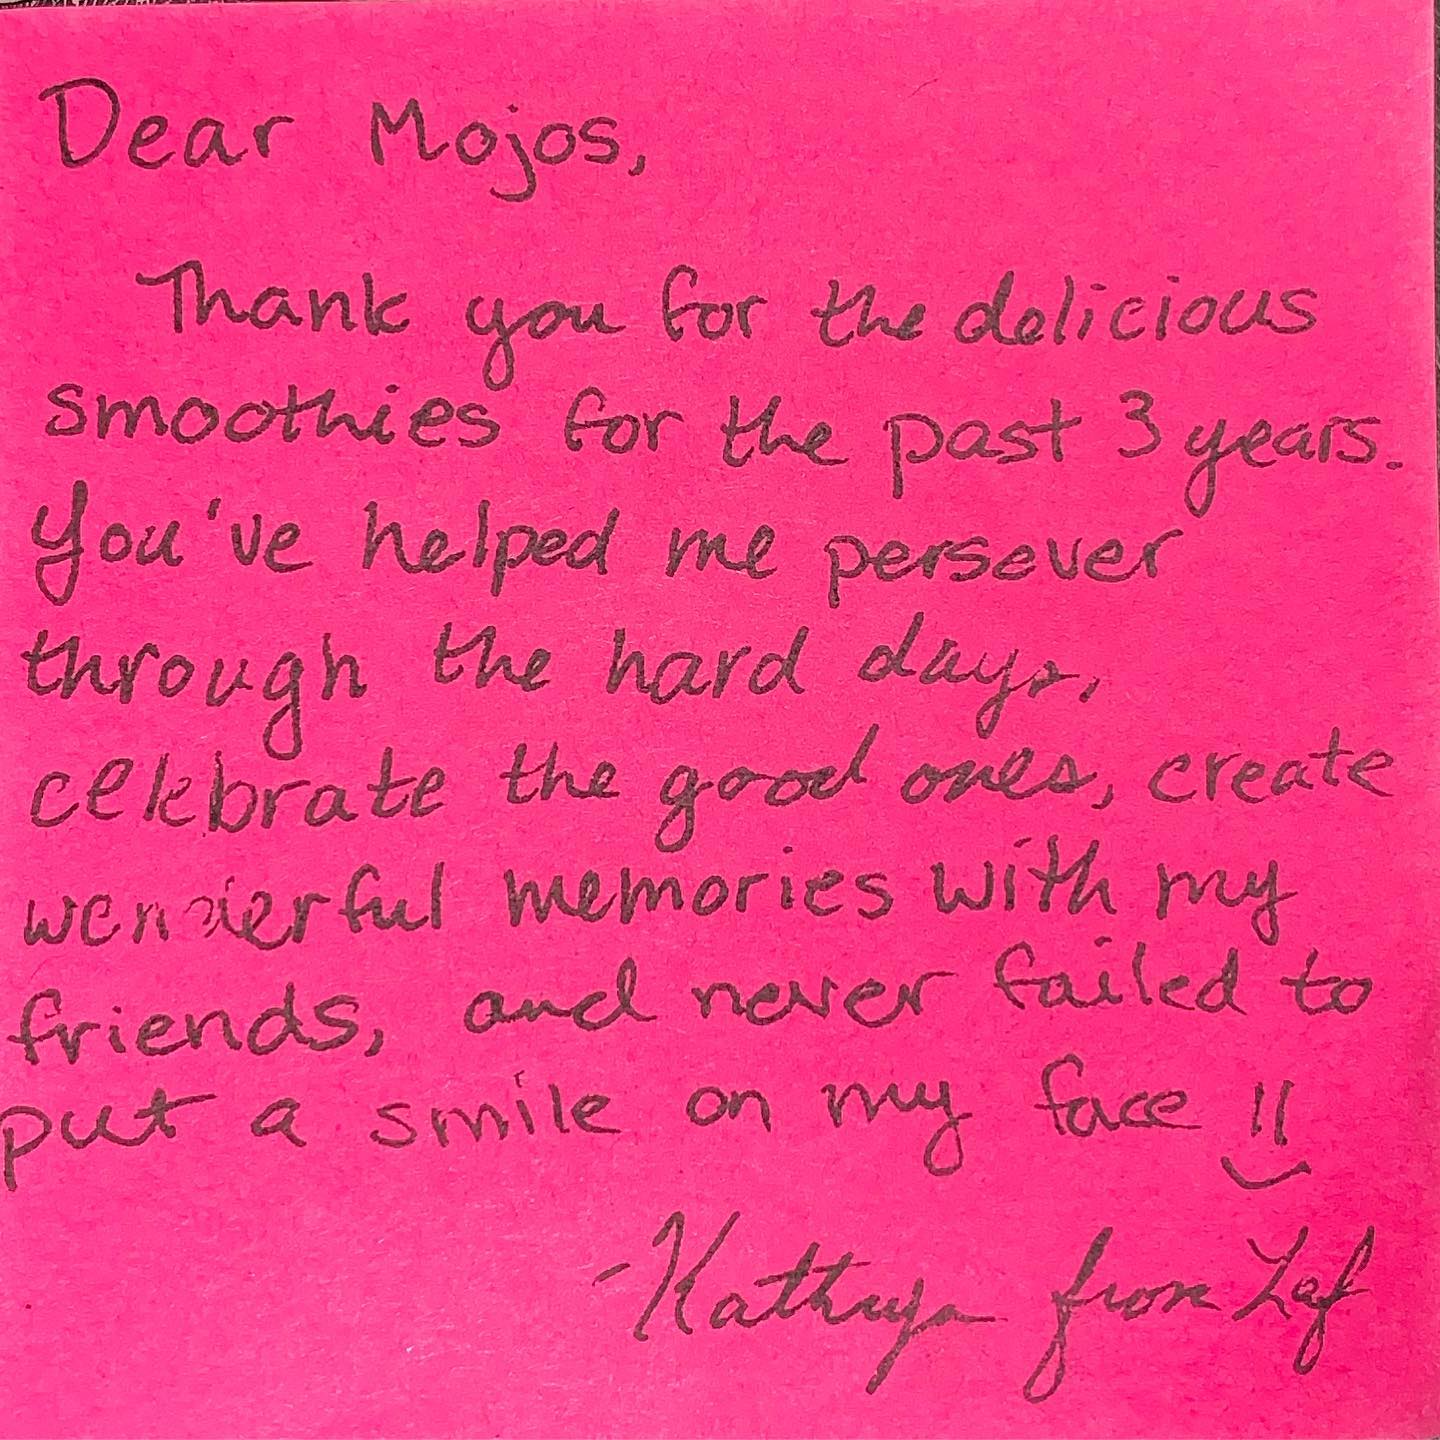 Dear Mojos,
Thank you for the delicious
smoothies for the past 3 years.
You've helped me persever
through the hard days,
celebrate the good ones, create
wonderful memories with my
friends, and never failed to
put a smile on my face !!
-Kathryn from Laf